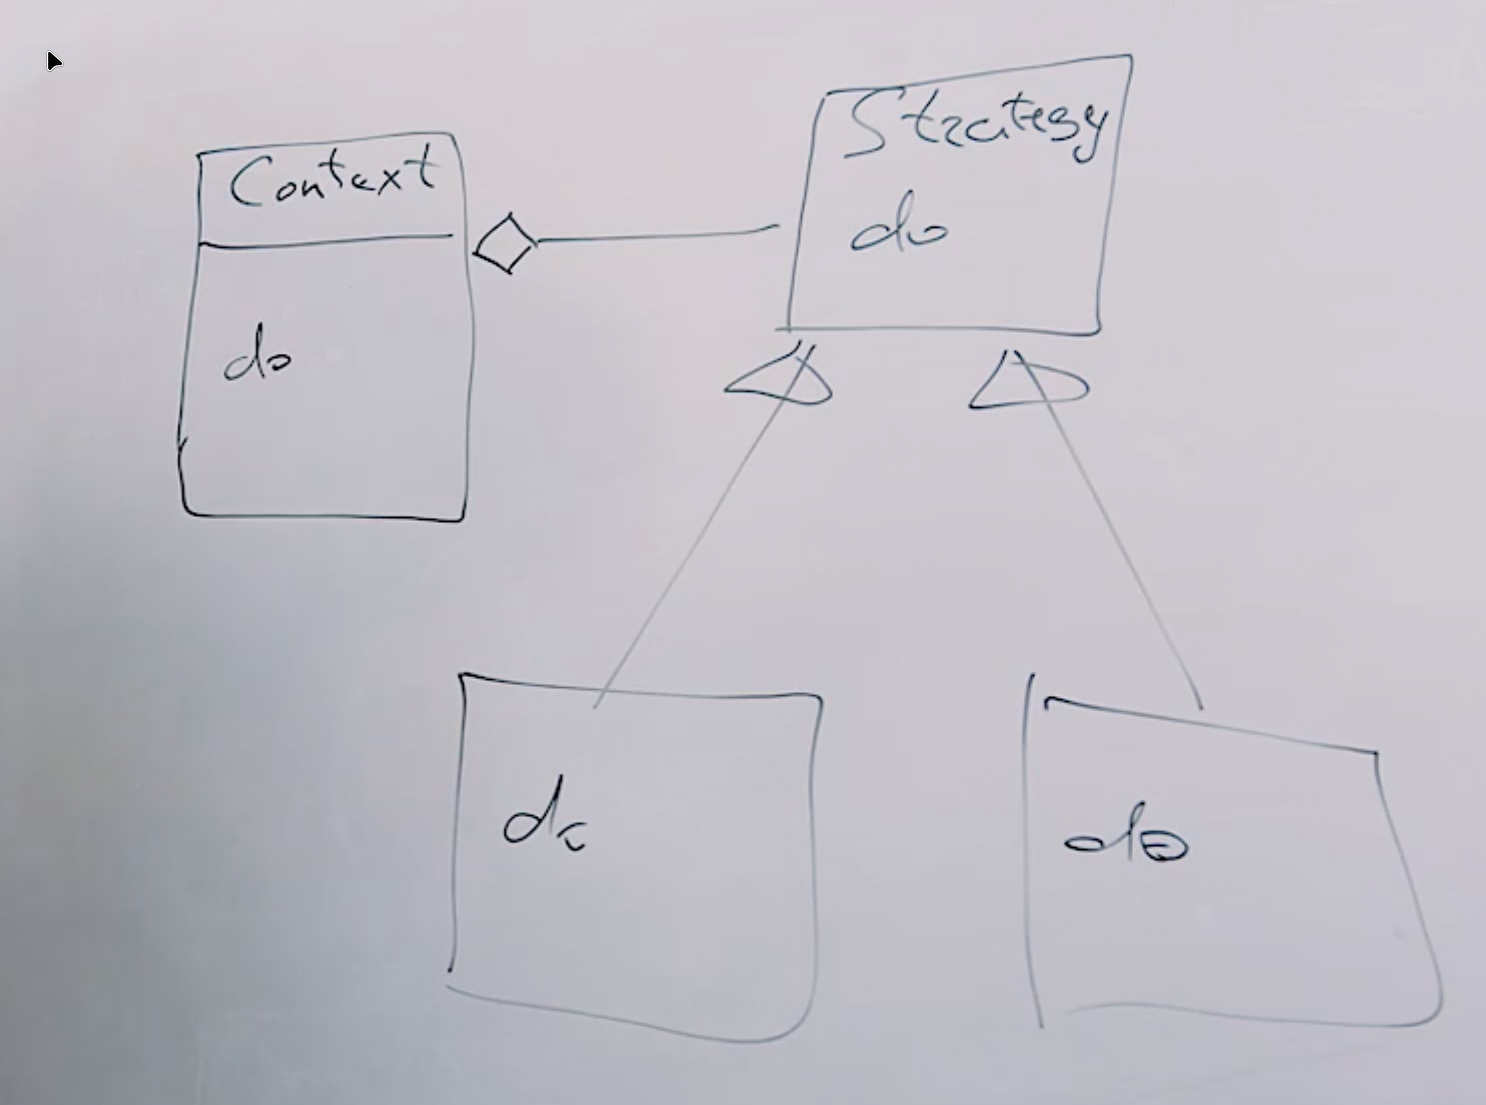 Context
do
Strategy
do
do
do